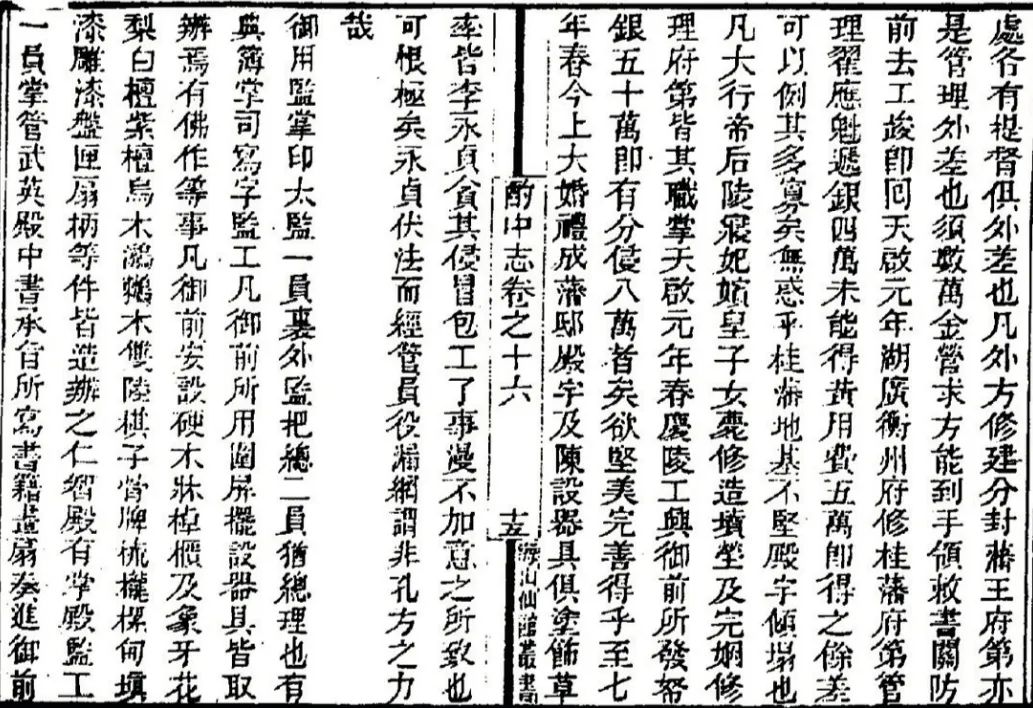 處各有提督俱外差也凡外方修建分封藩王府第亦
是管理外差也須數萬金營求方能到手領敕書關防
前去工竣卽囘天啟元年湖廣衡州府修桂藩府第管
理翟應魁遞銀四萬未能得黃用費五萬卽得之餘差
可以例其多寡矣無惑乎桂藩地基不堅殿宇傾塌也
凡大行帝后陵寢妃嬪皇子女薨修造墳塋及完姻修
理府第皆其職掌天啟元年春慶陵工興御前所發帑
銀五十萬卽有分侵八萬者矣欲堅美完善得乎至七
年春今上大婚禮成藩邸殿宇及陳設器具俱塗飾草
酌中志卷之十六
十五
海山仙館叢書
率皆李永貞貪其侵冒包工了事漫不加意之所致也
可根極矣永貞伏法而經管員役漏網謂非孔方之力
哉
御用監掌印太監一員裏外監把總二員猶總理也有
典簿掌司寫字監工凡御前所用圍屏擺設器具皆取
辦焉有佛作等事凡御前安設硬木牀棹櫃及象牙花
梨白檀紫檀烏木鸂鶒木雙陸棋子骨牌梳櫳樏甸塡
漆雕漆盤匣扇柄等件皆造辦之仁智殿有掌殿監工
一員掌管武英殿中書承旨所寫書籍畫扇奏進御前